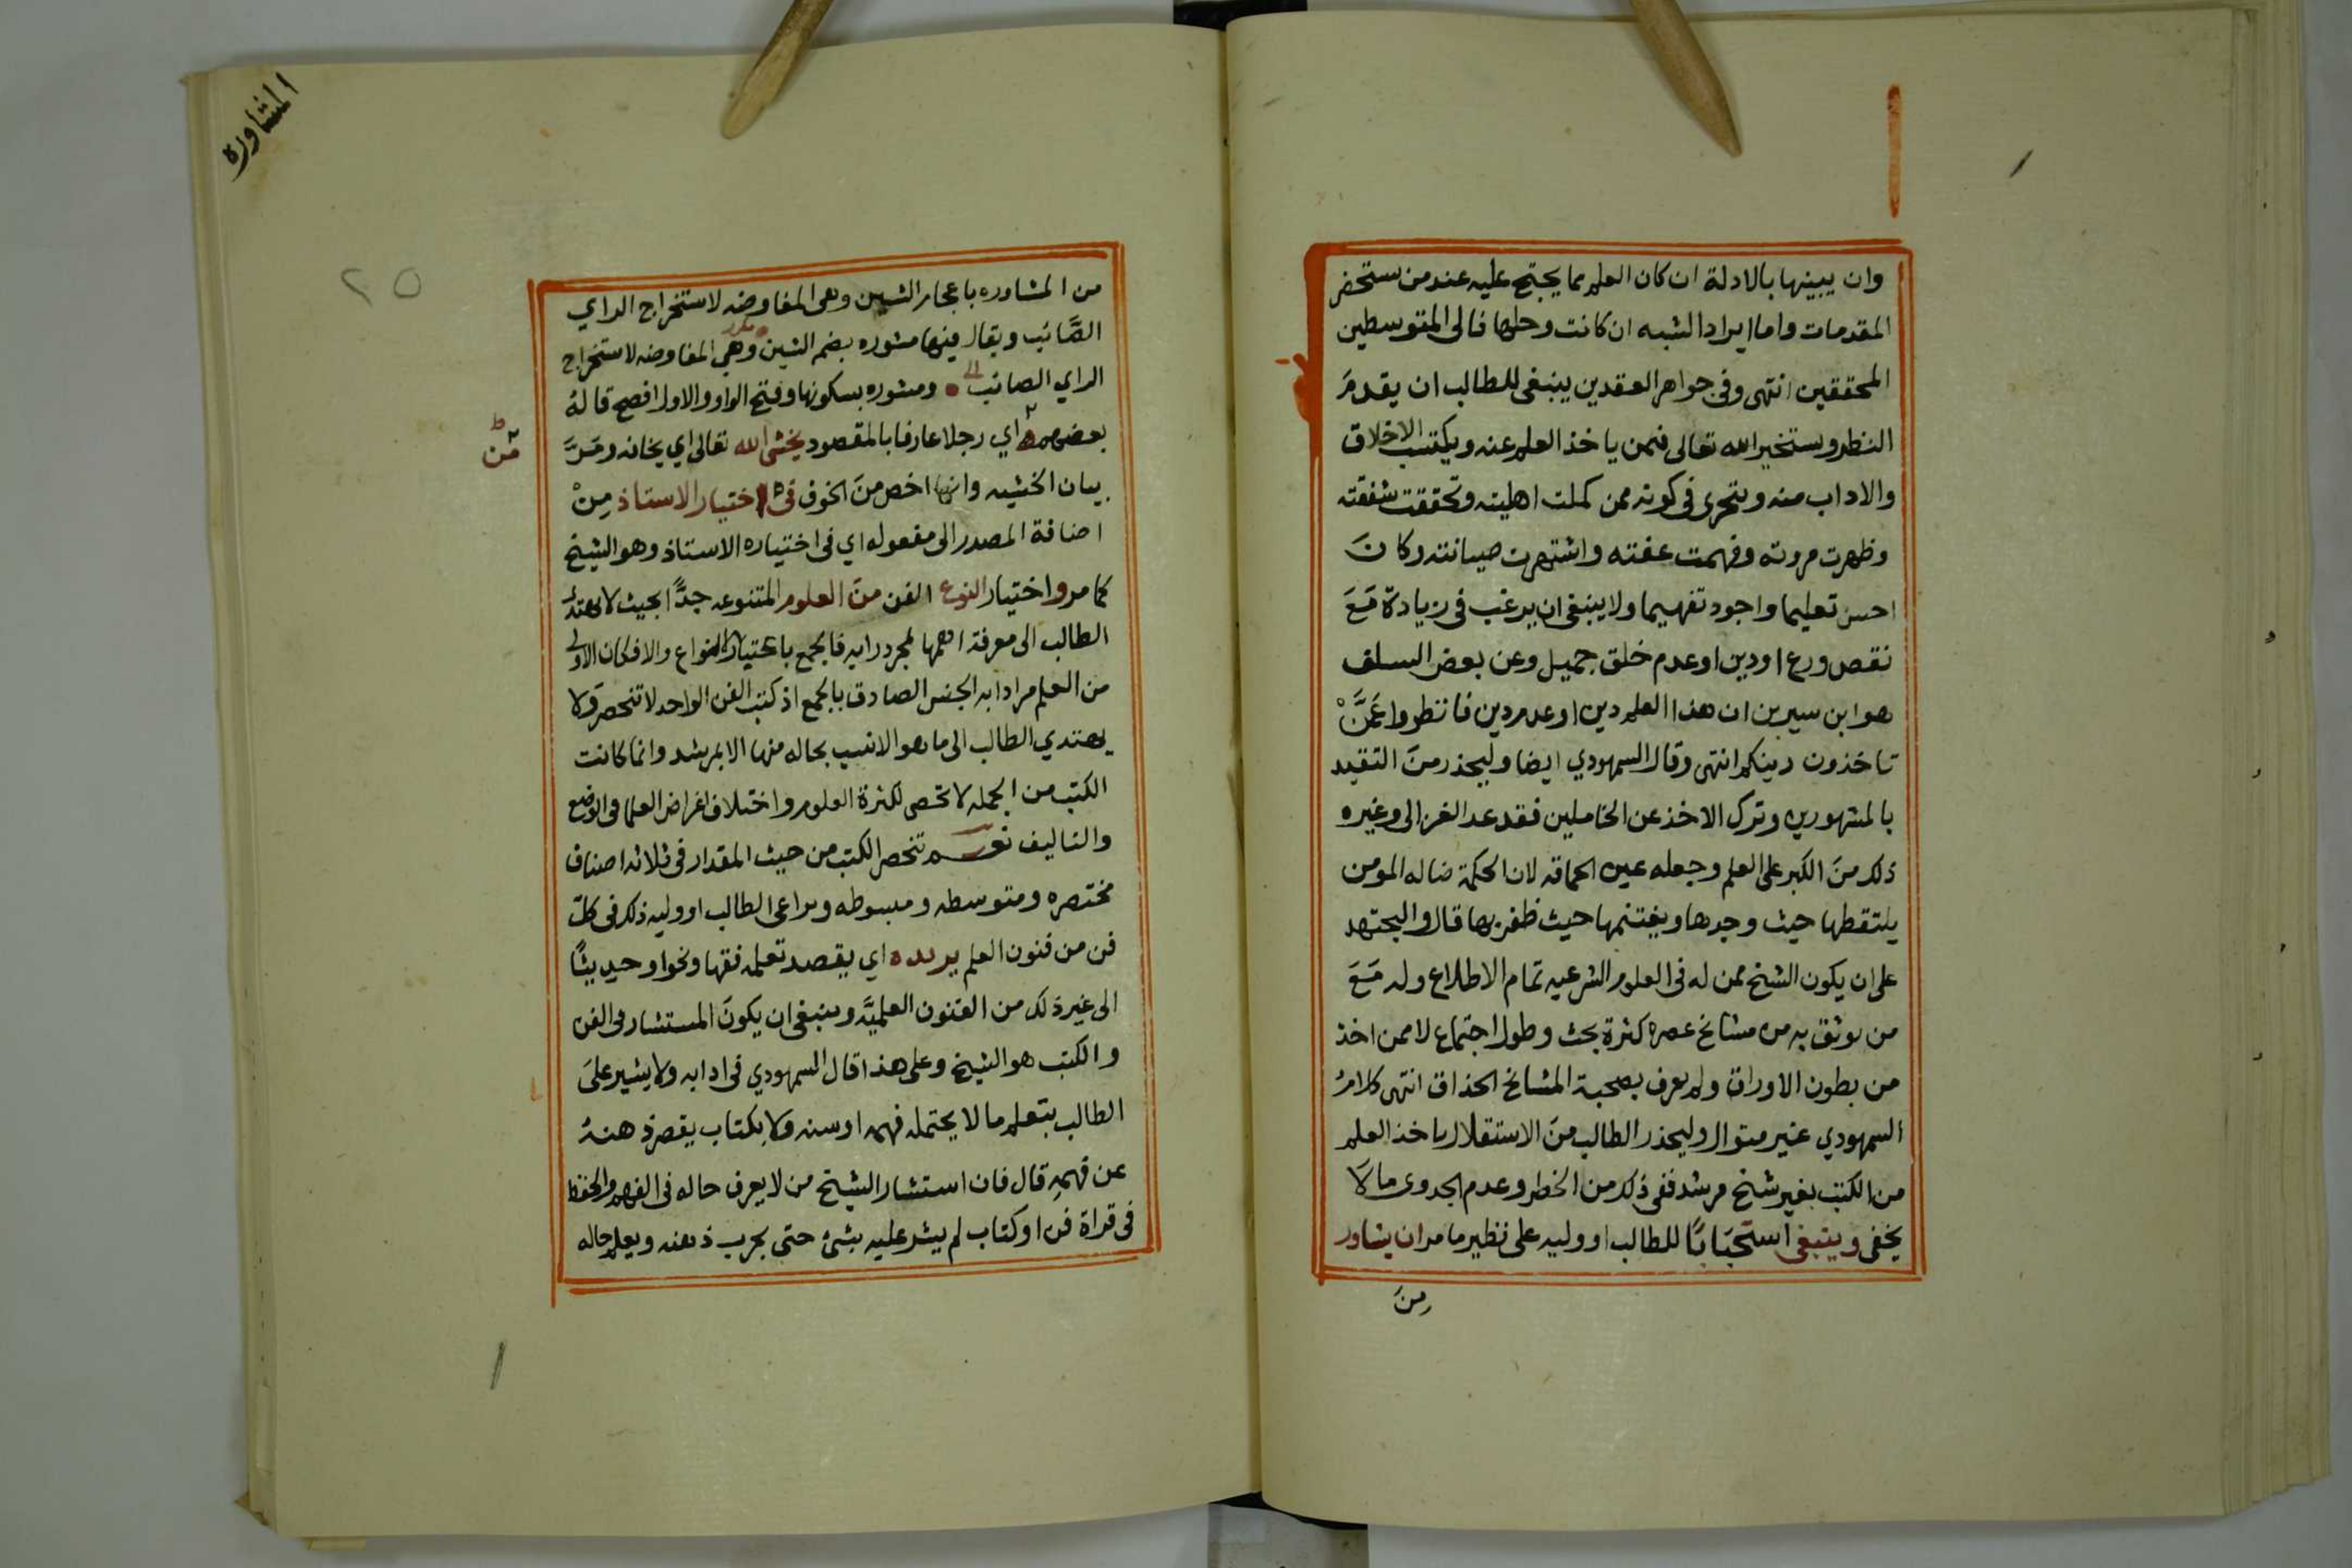 وان يبينها بالادلة ان كان العلم مما يحتج عليه عند من يستحضر
المقدمات واما ايراد الشبه ان كانت وحلها فالى المتوسطين
المحققين انتهى وفى جواهر العقدين ينبغى للطالب ان يقدم
النظر ويستخير الله تعالى فيمن ياخذ العلم عنه ويكتسب الاخلاق
والاداب منه ويتحرى فى كونه ممن كملت اهليته وتحققت شفقته
وظهرت مروته وفهمت عفته واشتهرت صيانته وكان
احسن تعليما واجود تفهيما ولا ينبغى ان يرغب فى زيادة مَعَ
نقص ورع او دين او عدم خلق جميل وعن بعض السلف
هو ابن سيرين ان هذا العلم دين او عدم دين فانظروا عَمَّنْ
تاخذون دينكم انتهى وقال السمهودي ايضا وليحذر منَ التقيد
بالمشهورين وترك الاخذ عن الخاملين فقد عد الغزالى وغيره
ذلك منَ الكبر على العلم وجعله عين الحماقه لان الحكمة ضاله المومن
يلتقطها حيث وجدها ويغتنمها حيث ظفر بها قال واليجتهد
على ان يكون الشيخ ممن له فى العلوم الشرعيه تمام الاطلاع وله مَعَ
من يوثق به من مشائخ عصره كثرة بحث وطول اجتماع لا ممن اخذ
من بطون الاوراق ولم يعرف بصحبة المشائخ الحذاق انتهى كلامُ
السمهودي غير متوال وليحذر الطالب منَ الاستقلال باخذ العلم
من الكتب بغير شيخ مرشد ففى ذلك من الخطر وعدم الجدوى مالا
يخفى وينبغى استحَبَابًا للطالب او وليه على نظير ما مر ان يشاور
منَ
المشاوره
٢٥
من المشاوره باعجام الشين وهى المفاوضه لاستخراج الراي
الصَّائب ويقال فيها مشوره بضم الشين وهي المفاوضه لاستخراج
الراي الصائب ومشوره بسكونها وفتح الواو والاول افصح قالهُ
بعضهم اي رجلا عارفا بالمقصود يخشى الله تعالى اي يخافه ومَرَّ
بيان الخشيه وانها اخص منَ الخوف فى اختيار الاستاذ مِنْ
اضافة المصدر الى مفعوله اي فى اختياره الاستاذ وهو الشيخ
كما مر واختيار النوع الفن منَ العلوم المتنوعه جدًّا بحيث لا يهتدى
الطالب الى معرفة اهمها لمجرد رايه فالجمع باعتبار الانواع والا فكان الاولى
من العلم مرادا به الجنس الصادق بالجمع اذ كتب الفن الواحد لا تنحصر ولا
يهتدي الطالب الى ما هو الانسب بحاله منها الا بمرشد وانما كانت
الكتب من الجمله لا تحصى لكثرة العلوم واختلاف اغراض العلما فى الوضع
والتاليف نعم تنحصر الكتب من حيث المقدار فى ثلاثه اصناف
مختصره ومتوسطه ومبسوطه ويراعى الطالب او وليه ذلك فى كل
فن من فنون العلم يريده اي يقصد تعلمه فقها ونحوا وحديثًا
الى غير ذلك من الفنون العلميَّه وينبغى ان يكونَ المستشار فى الفن
والكتب هو الشيخ وعلى هذا قال السمهودي فى ادابه ولا يشير علىَ
الطالب بتعلم ما لا يحتمله فهمه او سنه ولا بكتاب يقصر ذهنهُ
عن فهمهِ قال فان استشار الشيخ من لا يعرف حاله فى الفهم والحفظ
فى قراة فن او كتاب لم يشر عليه بشئ حتى يجرب ذهنه ويعلم حاله